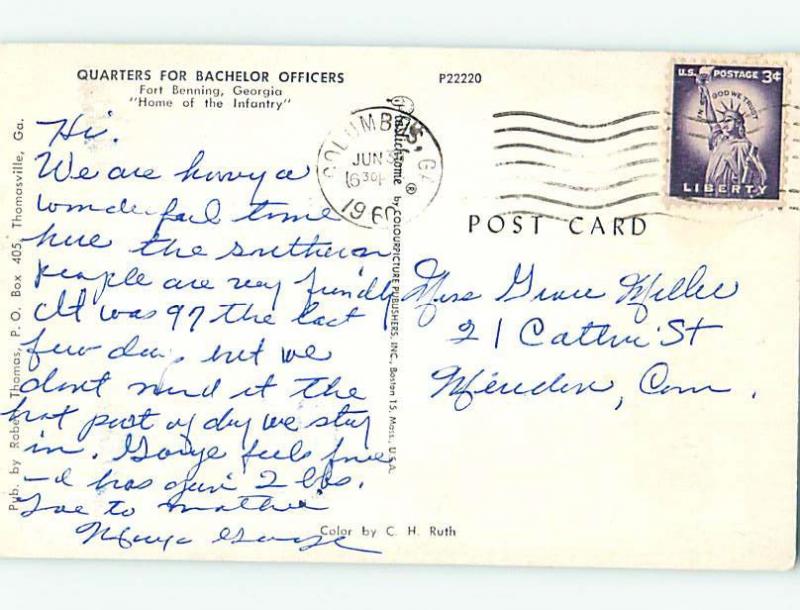 QUARTERS FOR BACHELOR OFFICERS
Fort Benning, Georgia
"Home of the Infantry"
P22220
Hi.
We are having a
wonderful time
here the southern
people are very friendly
It was 97 the last
few days but we
dont mind it the
hot part of day we stay
in. George feels fine
- & has gain 2 lbs.
Love to mother
George
COLUMBUS, GA.
JUN 3
630PM
1960
U.S. POSTAGE 3¢
IN GOD WE TRUST
LIBERTY
POST CARD
Miss Grace Miller
21 St
Meriden, Conn.
Plastichrome ® by COLOURPICTURE PUBLISHERS, INC., Boston 15, Mass., U.S.A.
Pub. by Robert Thomas, P. O. Box 405, Thomasville, Ga.
Color by C. H. Ruth